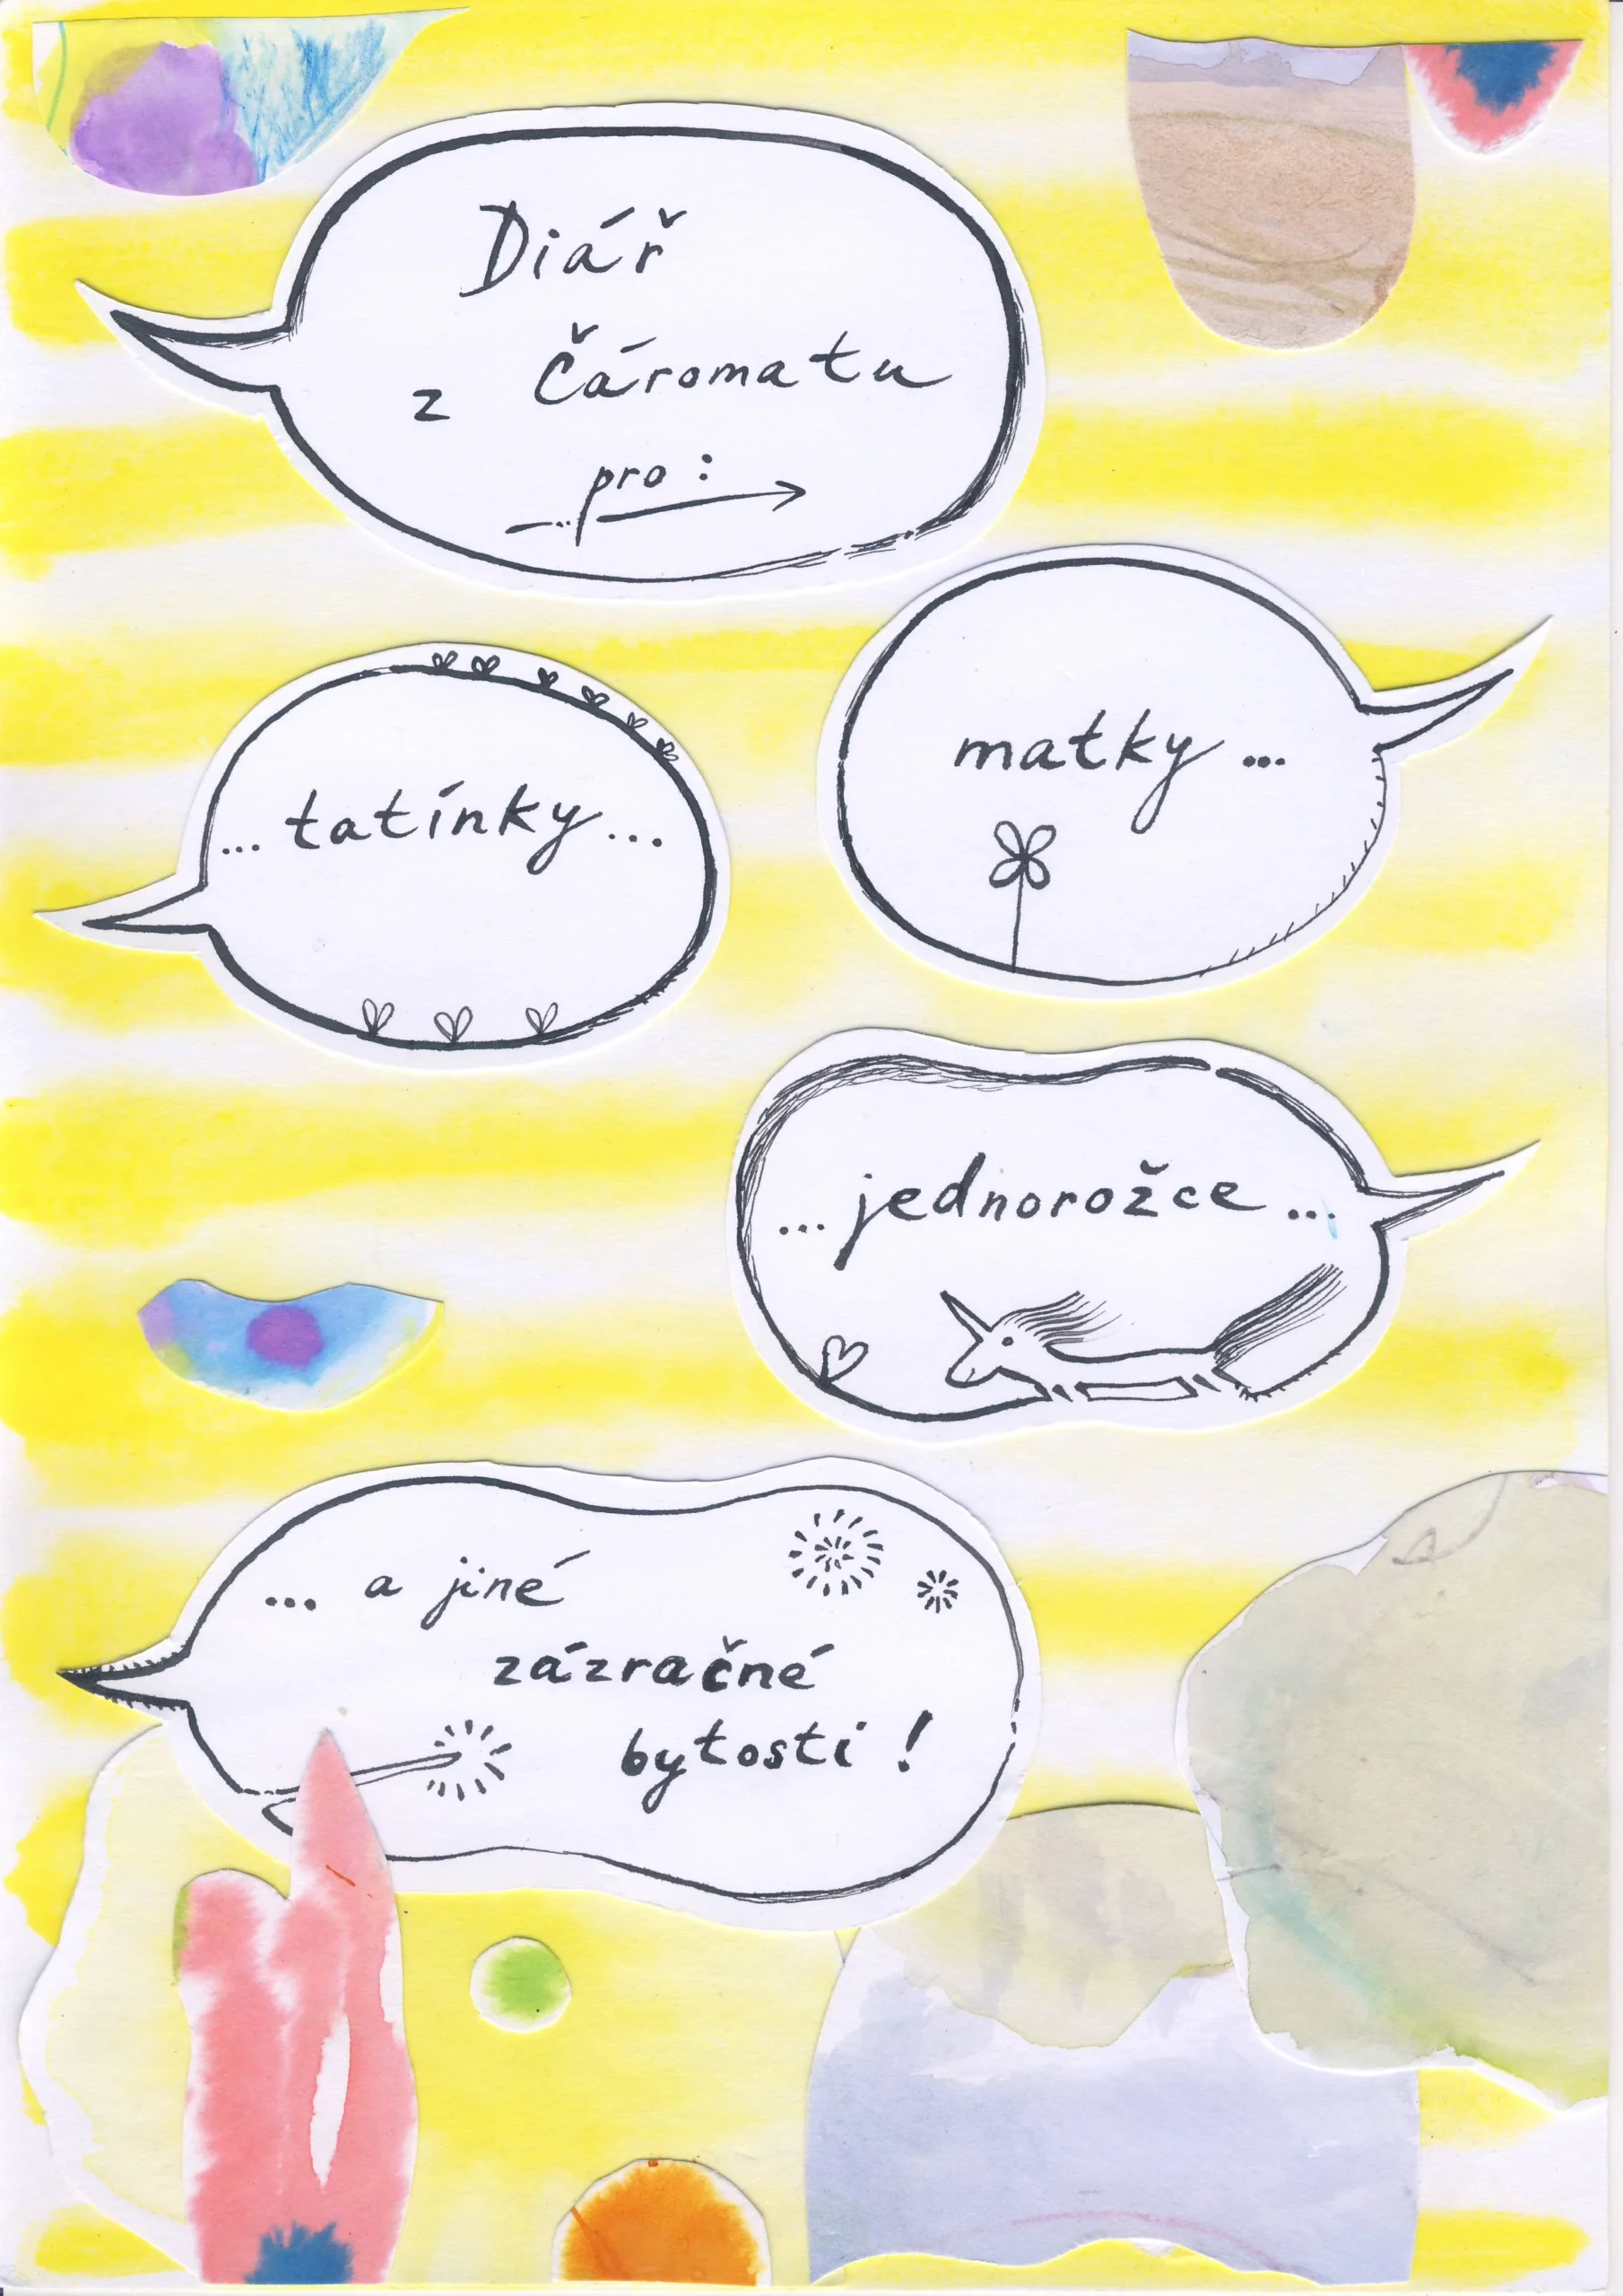 Diář
z Čáromatu
pro:
matky...
...tatínky...
...jednorožce...
... a jiné
zázračné
bytosti!